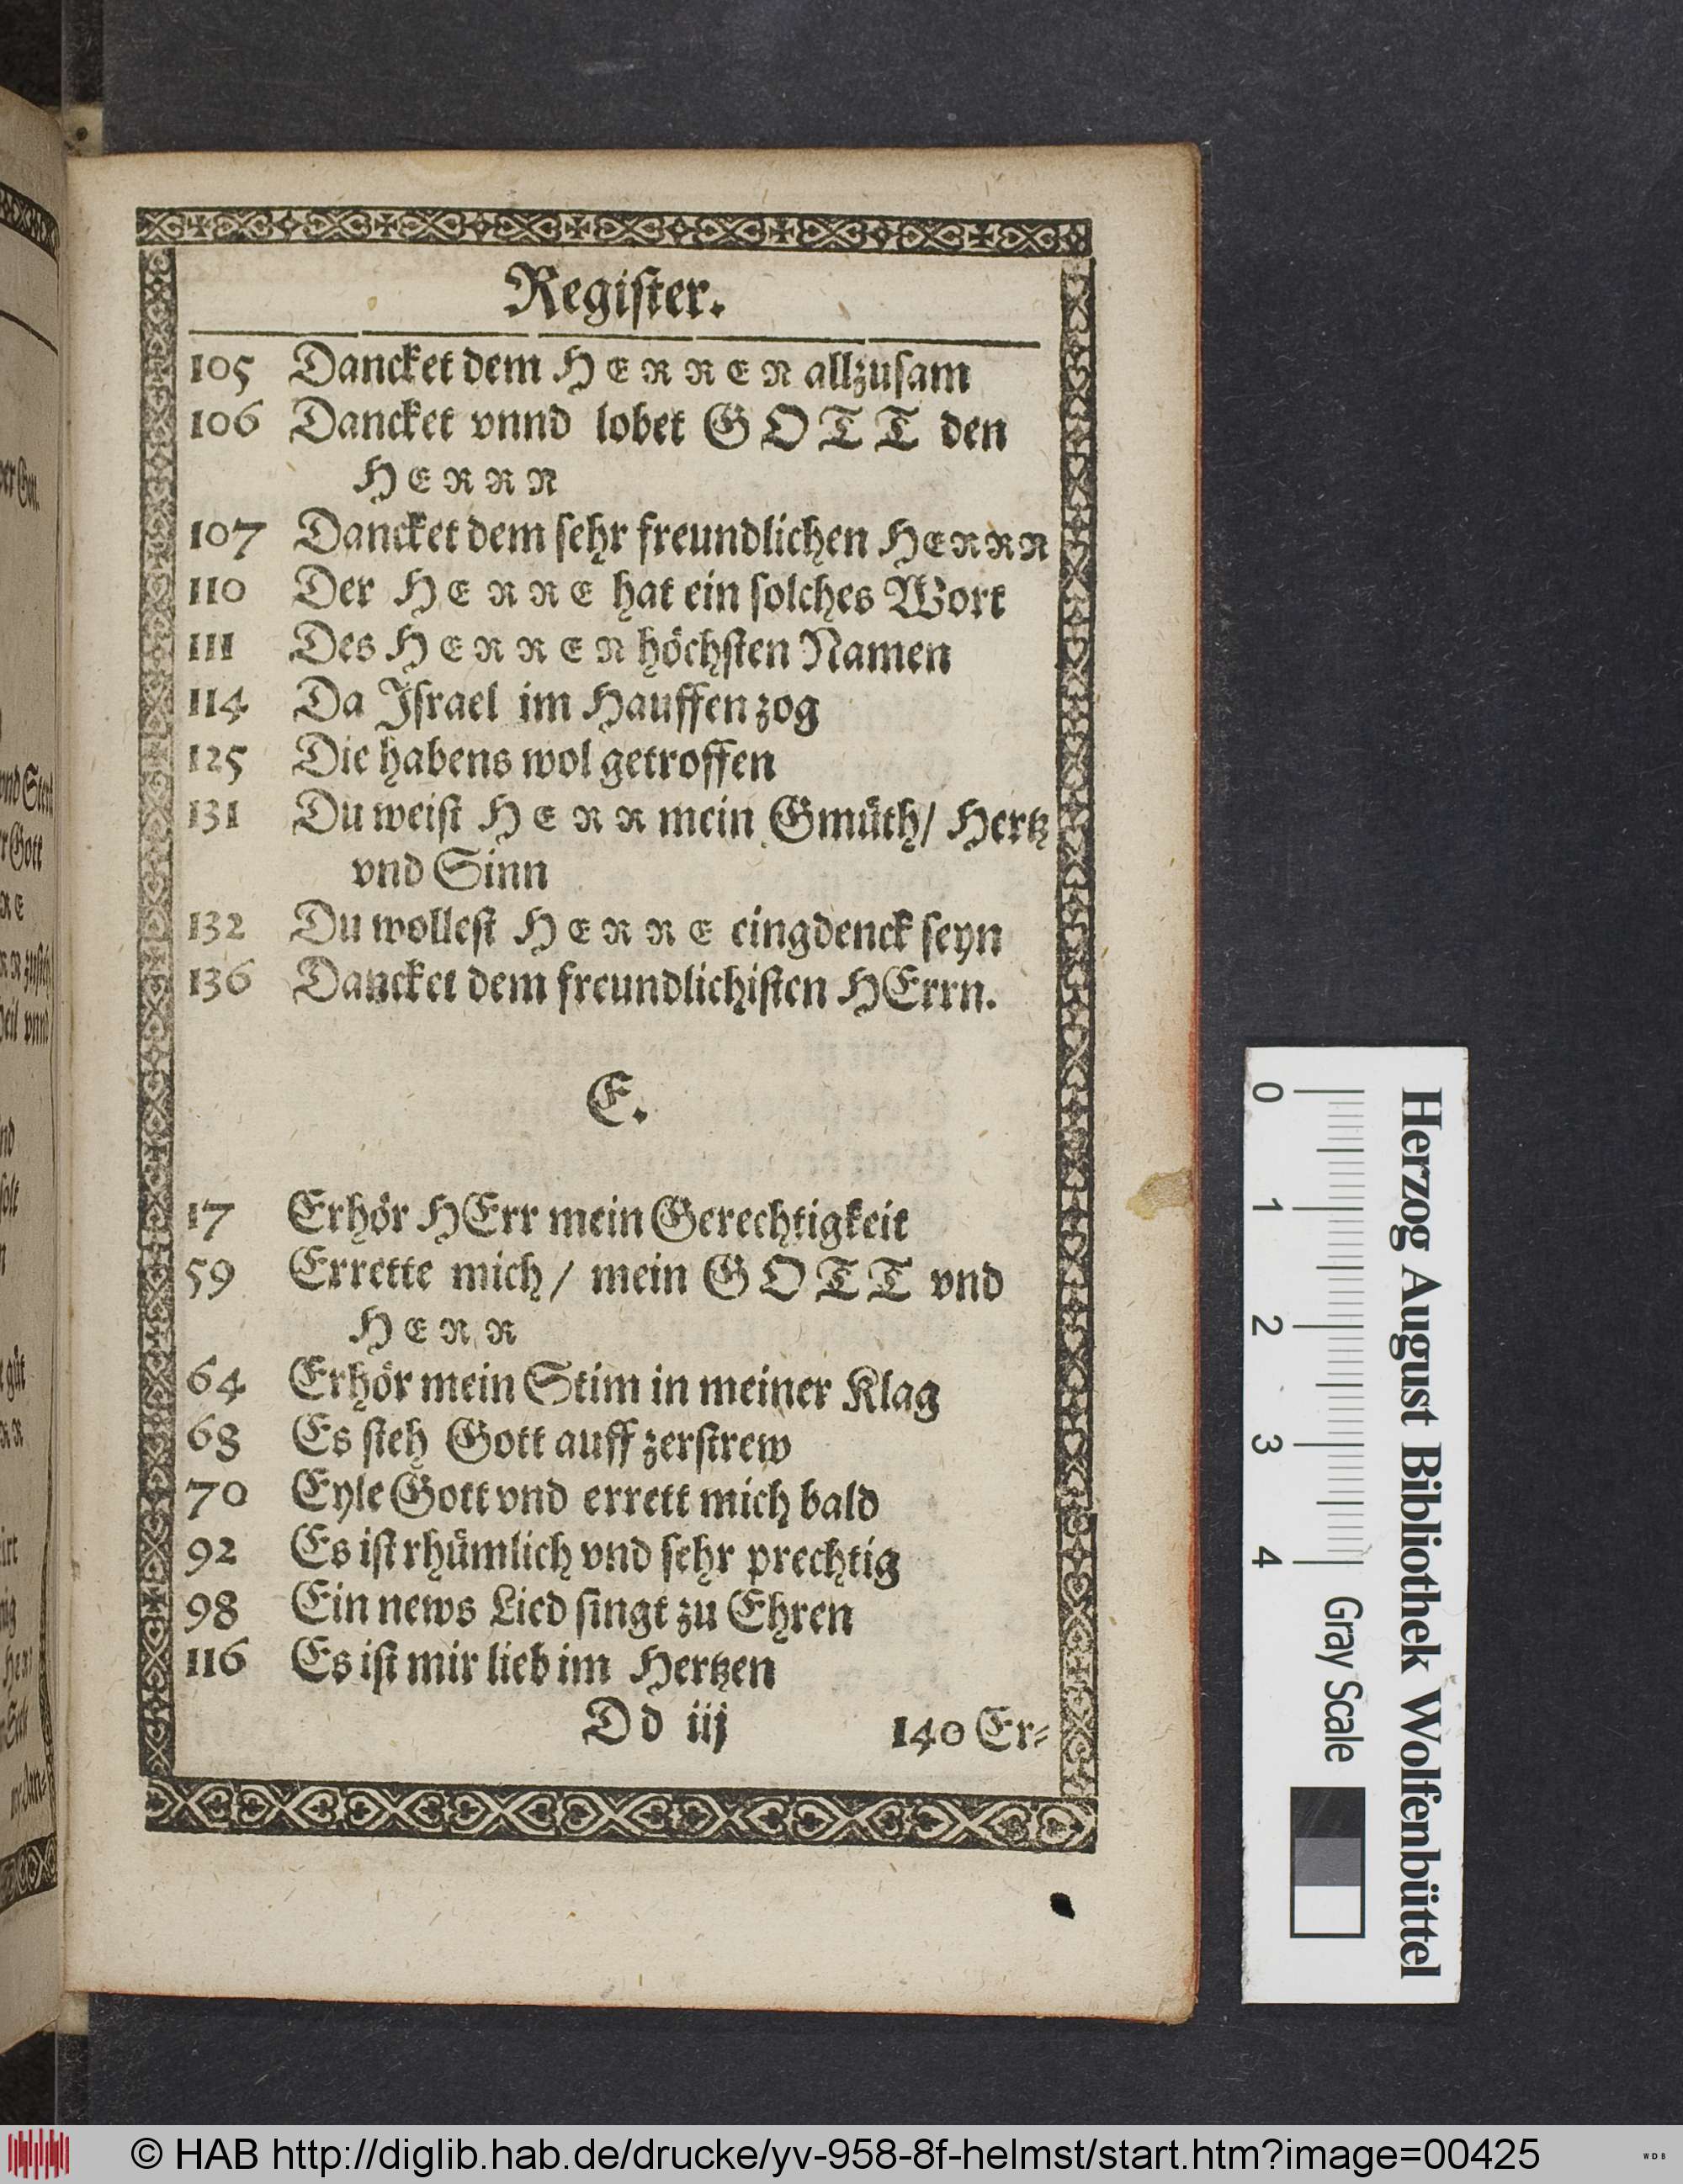 Regiſter.
105 Dancket dem HERREN allzuſam
106 Dancket vnnd lobet GOTT den
HERRN
107 Dancket dem ſehr freundlichen HERRN
110 Der HERRE hat ein ſolches Wort
111 Des HERREN höchſten Namen
114 Da Iſrael im Hauffen zog
125 Die habens wol getroffen
131 Du weiſt HERR mein Gmüth/ Hertz
vnd Sinn
132 Du wolleſt HERRE eingdenck ſeyn
136 Dancket dem freundlichiſten HErrn.
E.
17 Erhör HErr mein Gerechtigkeit
59 Errette mich/ mein GOTT vnd
HERR
64 Erhör mein Stim in meiner Klag
68 Es ſteh Gott auff zerſtrew
70 Eyle Gott vnd errett mich bald
92 Es iſt rhümlich vnd ſehr prechtig
98 Ein news Lied ſingt zu Ehren
116 Es iſt mir lieb im Hertzen
Dd iij 140 Er-
Herzog August Bibliothek Wolfenbüttel
0 1 2 3 4 Gray Scale
© HAB http://diglib.hab.de/drucke/yv-958-8f-helmst/start.htm?image=00425
WDB